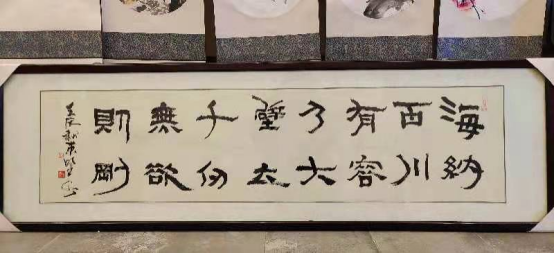 海納
百川
有容
乃大
壁立
千仞
無欲
則剛